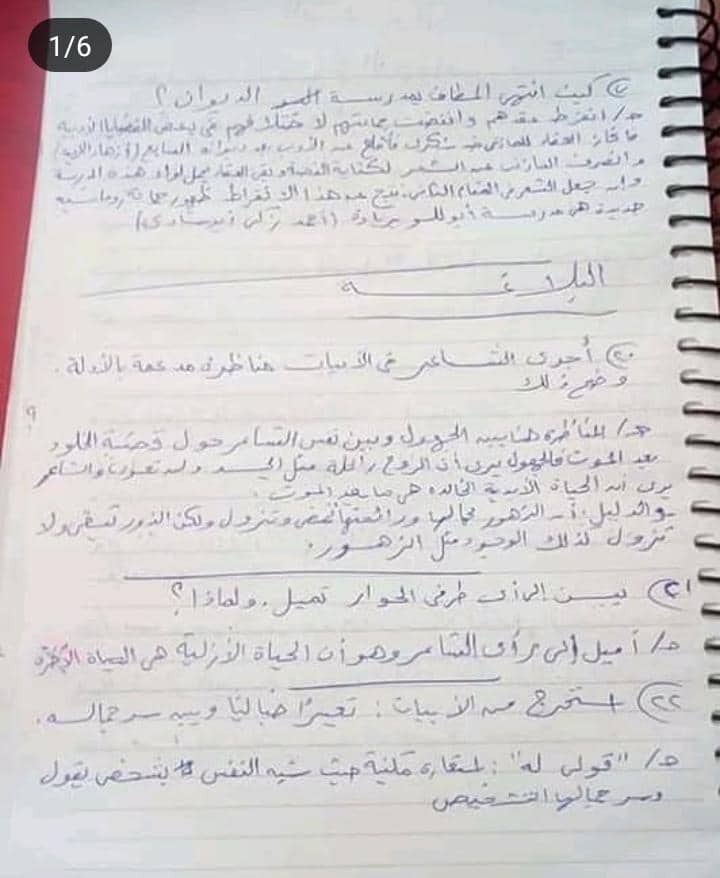 1/6
٧) كيف انتهى المطاف بمدرسة الديوان؟
حـ/ انفرط عقدهم وانفضت جماعتهم لاختلافهم في بعض القضايا الأدبية
فانحاز العقاد للمازني ضد شكري فأقلع عن الأدب بعد ديوانه السابع (أزهار الخريف)
وانصرف المازني عن الشعر لكتابة القصة وبقى العقاد يحمل لواء هذه المدرسة
وإن جعل الشعر في المقام الثاني. نتج عن هذا الانفراط ظهور جماعة رومانسية
جديدة هي مدرسة أبوللو بريادة (أحمد زكى أبو شادى)
البلاغــة
٢٠) أجرى الشاعر في الأبيات مناظرة مدعمة بالأدلة.
وضح ذلك
؟
حـ/ المناظرة هنا بين الجهول وبين نفس الشاعر حول قضية الخلود
بعد الموت فالجهول يرى أن الروح زائلة مثل الجسد ولن تعود والشاعر
يرى أن الحياة الأبدية الخالدة هي ما بعد الموت.
والدليل: أن الزهور جمالها ورائحتها تمضى وتزول ولكن البذور تبقى ولا
تزول كذلك الوجود مثل الزهور.
٢١) إلى رأى طرفى الحوار تميل. ولماذا؟
حـ/ أميل إلى رأى الشاعر وهو أن الحياة الأزلية هي الحياة الآخرة
٢٢) استخرج من الأبيات: تعبيرًا خياليًا وبين سر جماله.
حـ/ "قولى له": استعارة مكنية حيث شبه النفس بشخص يقول
وسر جمالها التشخيص